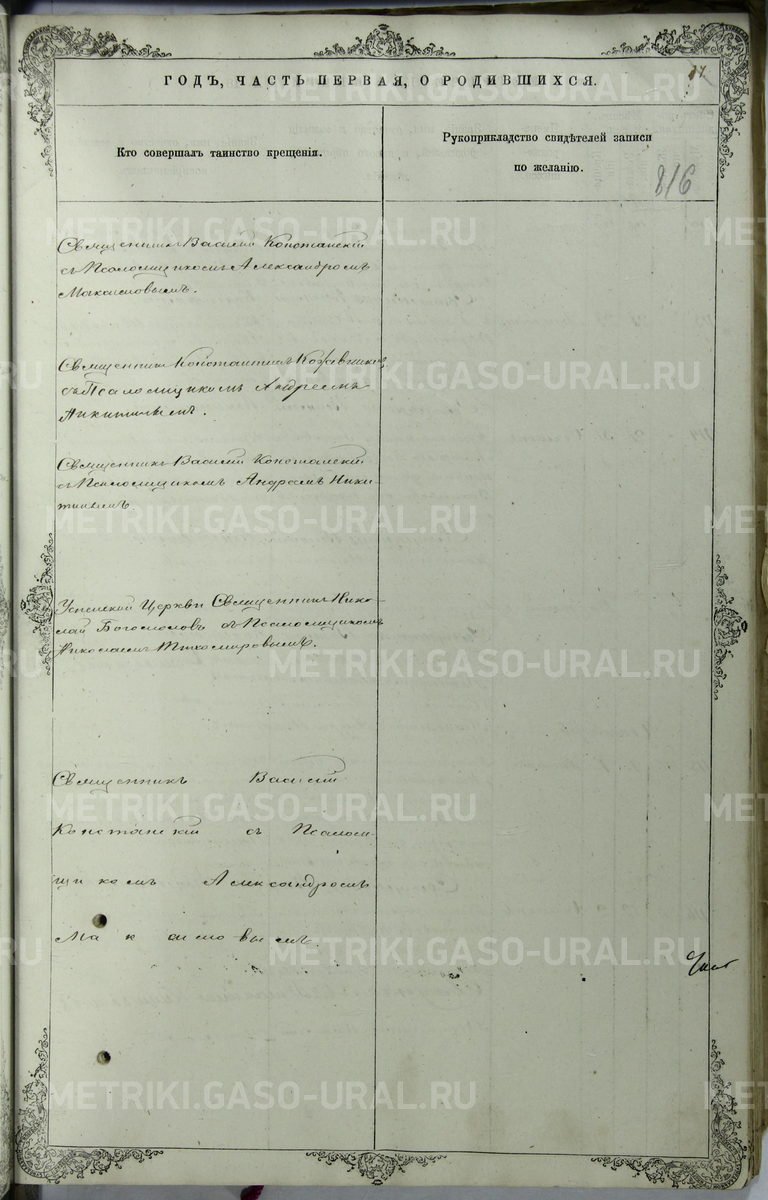 ГОДЪ, ЧАСТЬ ПЕРВАЯ, О РОДИВШИХСЯ.
17
Кто совершалъ таинство крещенія.
Рукоприкладство свидѣтелей записи
по желанію.
816
Священникъ Василій Конотанскій
съ Псаломщикомъ Александромъ
Максимовымъ.
Священникъ Константинъ Кожевниковъ
съ Псаломщикомъ Андреемъ
Никитинымъ.
Священникъ Василій
съ Псаломщикомъ Андреемъ Ники-
тинымъ.
Успенской Церкви Священникъ Нико-
лай Богословъ съ Псаломщикомъ
Николаемъ Тихомировымъ.
Священникъ Василій
съ Псаломщ-
икомъ Александромъ
Максимовымъ.
METRIKI.GASO-URAL.RU